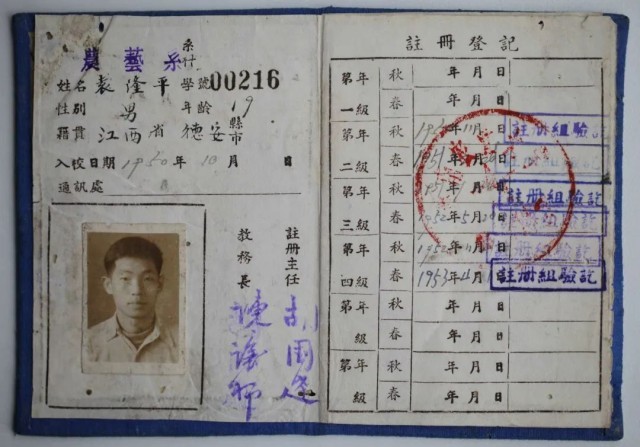 農藝系
系
科
姓名 袁隆平 學號 00216
性別 男 年齡 19
籍貫 江西省 德安 縣市
入校日期 1950年10月 日
通訊處
註冊主任
教務長
註冊登記
第一年級 秋 年 月 日
春 年 月 日
第二年級 秋 年 月 日 註册組驗訖
春 1951年 月 日
第三年級 秋 1951年 月 日 註册組驗訖
春 1952年5月 日 註册組驗訖
第四年級 秋 1952年 月 日 註册組驗訖
春 1953年 月 日 註册組驗訖
第 年級 秋 年 月 日
春 年 月 日
第 年級 秋 年 月 日
春 年 月 日